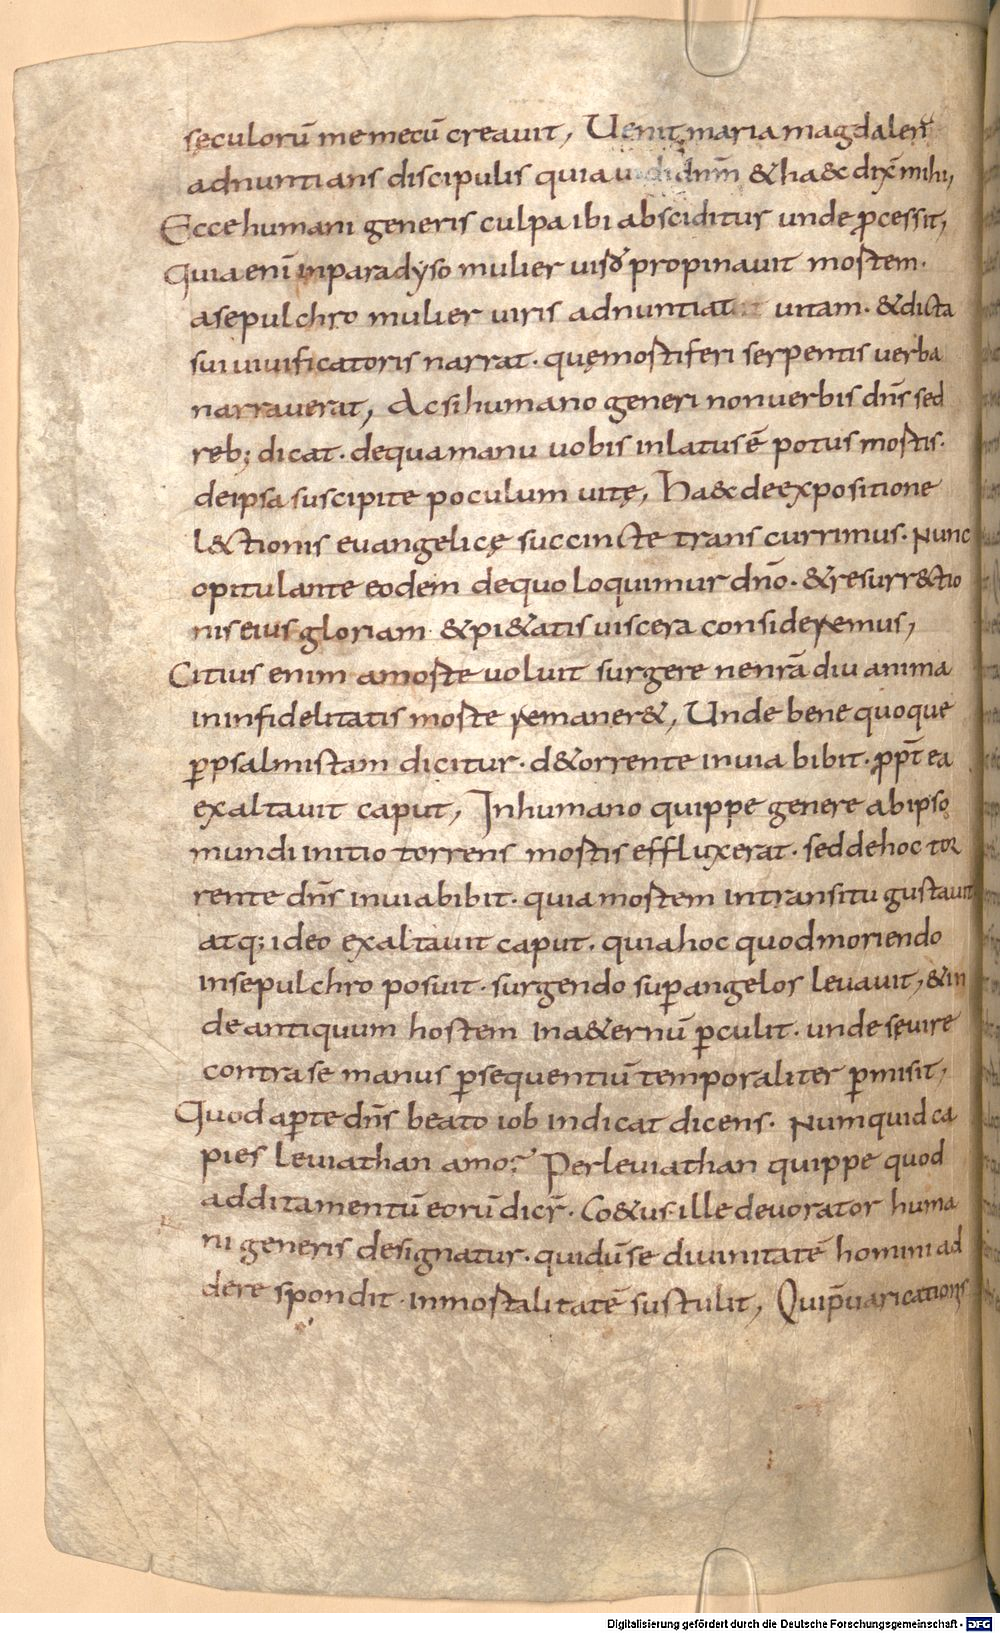 sęculorū me mecū creauit, Uenit maria magdalen̄
adnuntians discipulis quia uidi dnm̄ & haec dix̄ mihi,
Ecce humani generis culpa ibi absciditur unde ꝓcessit,
Quia enī inparadyso mulier uiro propinauit mortem.
asepulchro mulier uiris adnuntiat uitam. & dicta
sui uiuificatoris narrat. quę mortiferi serpentis uerba
narrauerat, Ac si humano generi nonuerbis dn̄s sed
reb; dicat. dequa manu uobis inlatus ē potus mortis.
deipsa suscipite poculum uitę, Haec deexpositione
l&ctionis euangelicę succincte transcurrimus. Nunc
opitulante eodem dequo loquimur dn̄o. & resurr&ctio
nis eius gloriam & pi&atis uiscera consideremus,
Citius enim amorte uoluit surgere ne nr̄a diu anima
ininfidelitatis morte remaner&, Unde bene quoque
ꝑpsalmistam dicitur. d&orrente inuia bibit. ꝓpt̄ ea
exaltauit caput, Inhumano quippe genere abipso
mundi initio torrens mortis effluxerat. sed dehoc tor
rente dn̄s inuia bibit. quia mortem intransitu gustauit
atq; ideo exaltauit caput. quia hoc quod moriendo
insepulchro posuit. surgendo suꝑangelos leuauit, & in
de antiquum hostem ina&ernū ꝑculit. unde sęuire
contra se manus ꝑsequentiū temporaliter ꝑmisit,
Quod aꝑte dn̄s beato iob indicat dicens. Numquid ca
pies leuiathan amo? Per leuiathan quippe quod
additamentū eorū dicr̄. Co&us ille deuorator huma
ni generis designatur. qui dū se diuinitatē homini ad
dere spondit. inmortalitatē sustulit, Qui p̄uaricationis
Digitalisierung gefördert durch die Deutsche Forschungsgemeinschaft - DFG